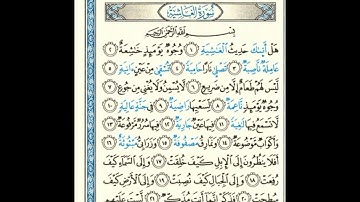 سُورَةُ الْغَاشِيَةِ
بِسْمِ اللَّهِ الرَّحْمَٰنِ الرَّحِيمِ
هَلْ أَتَىٰكَ حَدِيثُ الْغَٰشِيَةِ ١ وُجُوهٌ يَوْمَئِذٍ خَٰشِعَةٌ ٢
عَامِلَةٌ نَّاصِبَةٌ ٣ تَصْلَىٰ نَارًا حَامِيَةً ٤ تُسْقَىٰ مِنْ عَيْنٍ ءَانِيَةٍ ٥
لَّيْسَ لَهُمْ طَعَامٌ إِلَّا مِن ضَرِيعٍ ٦ لَّا يُسْمِنُ وَلَا يُغْنِي مِن جُوعٍ ٧
وُجُوهٌ يَوْمَئِذٍ نَّاعِمَةٌ ٨ لِّسَعْيِهَا رَاضِيَةٌ ٩ فِي جَنَّةٍ عَالِيَةٍ ١٠
لَّا تَسْمَعُ فِيهَا لَٰغِيَةً ١١ فِيهَا عَيْنٌ جَارِيَةٌ ١٢ فِيهَا سُرُرٌ مَّرْفُوعَةٌ ١٣
وَأَكْوَابٌ مَّوْضُوعَةٌ ١٤ وَنَمَارِقُ مَصْفُوفَةٌ ١٥ وَزَرَابِيُّ مَبْثُوثَةٌ ١٦
أَفَلَا يَنظُرُونَ إِلَى الْإِبِلِ كَيْفَ خُلِقَتْ ١٧ وَإِلَى السَّمَاءِ كَيْفَ
رُفِعَتْ ١٨ وَإِلَى الْجِبَالِ كَيْفَ نُصِبَتْ ١٩ وَإِلَى الْأَرْضِ كَيْفَ
سُطِحَتْ ٢٠ فَذَكِّرْ إِنَّمَا أَنتَ مُذَكِّرٌ ٢١ لَّسْتَ عَلَيْهِم